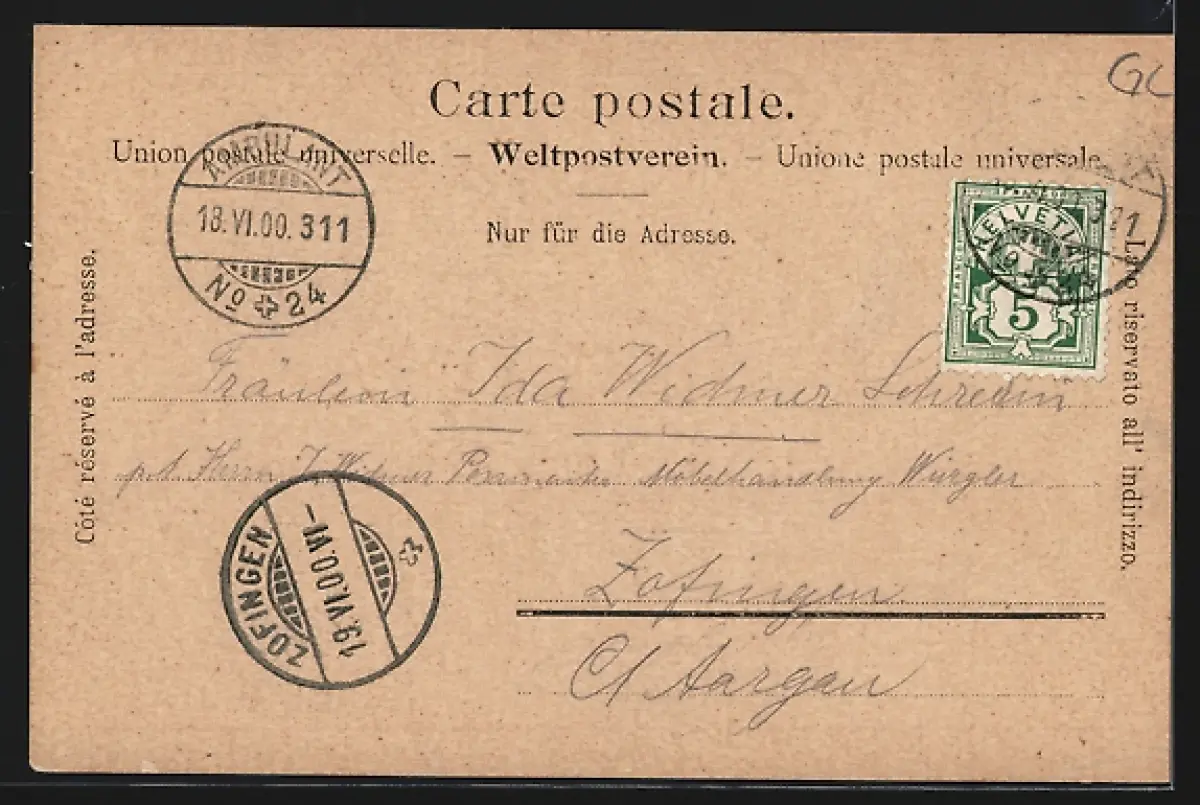 GL
Carte postale.
Union postale universelle. – Weltpostverein. – Unione postale universale.
Nur für die Adresse.
AMBULANT
18.VI.00.311
No 24
HELVETIA
FRANCO
5
321
Côté réservé à l'adresse.
Lato riservato all' indirizzo.
Fräulein Ida Widmer
p. A. Herrn J. Widmer Möbelhandlung Würgler
Zofingen
Ct Aargau
ZOFINGEN
19.VI.00.VI–